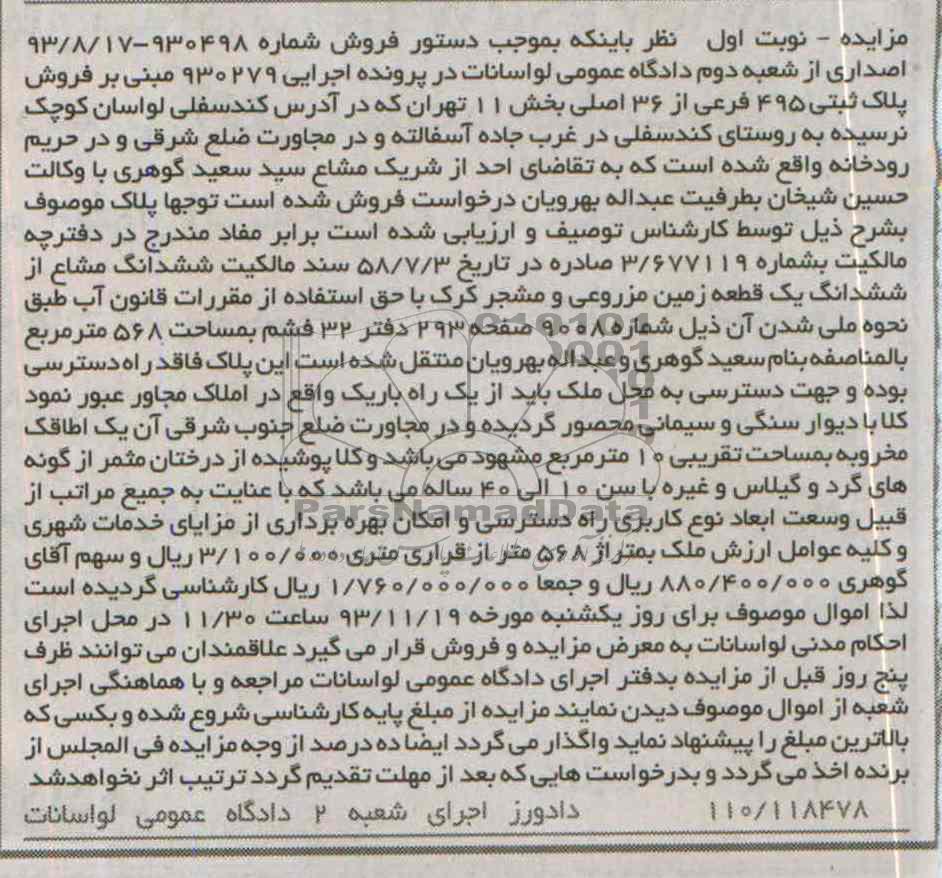 مزایده – نوبت اول نظر باینکه بموجب دستور فروش شماره ۹۳۰۴۹۸-۹۳/۸/۱۷
اصداری از شعبه دوم دادگاه عمومی لواسانات در پرونده اجرایی ۹۳۰۲۷۹ مبنی بر فروش
پلاک ثبتی ۴۹۵ فرعی از ۳۶ اصلی بخش ۱۱ تهران که در آدرس کندسفلی لواسان کوچک
نرسیده به روستای کندسفلی در غرب جاده آسفالته و در مجاورت ضلع شرقی و در حریم
رودخانه واقع شده است که به تقاضای احد از شریک مشاع سید سعید گوهری با وکالت
حسین شیخان بطرفیت عبداله بهرویان درخواست فروش شده است توجها پلاک موصوف
بشرح ذیل توسط کارشناس توصیف و ارزیابی شده است برابر مفاد مندرج در دفترچه
مالکیت بشماره ۳/۶۷۷۱۱۹ صادره در تاریخ ۵۸/۷/۳ سند مالکیت ششدانگ مشاع از
ششدانگ یک قطعه زمین مزروعی و مشجر کرک با حق استفاده از مقررات قانون آب طبق
نحوه ملی شدن آن ذیل شماره ۹۰۰۸ صفحه ۲۹۳ دفتر ۳۲ فشم بمساحت ۵۶۸ مترمربع
بالمناصفه بنام سعید گوهری و عبداله بهرویان منتقل شده است این پلاک فاقد راه دسترسی
بوده و جهت دسترسی به محل ملک باید از یک راه باریک واقع در املاک مجاور عبور نمود
کلا با دیوار سنگی و سیمانی محصور گردیده و در مجاورت ضلع جنوب شرقی آن یک اطاقک
مخروبه بمساحت تقریبی ۱۰ مترمربع مشهود می باشد و کلا پوشیده از درختان مثمر از گونه
های گرد و گیلاس و غیره با سن ۱۰ الی ۴۰ ساله می باشد که با عنایت به جمیع مراتب از
قبیل وسعت ابعاد نوع کاربری راه دسترسی و امکان بهره برداری از مزایای خدمات شهری
و کلیه عوامل ارزش ملک بمتراژ ۵۶۸ متر از قراری متری ۳/۱۰۰/۰۰۰ ریال و سهم آقای
گوهری ۸۸۰/۴۰۰/۰۰۰ ریال و جمعا ۱/۷۶۰/۰۰۰/۰۰۰ ریال کارشناسی گردیده است
لذا اموال موصوف برای روز یکشنبه مورخه ۹۳/۱۱/۱۹ ساعت ۱۱/۳۰ در محل اجرای
احکام مدنی لواسانات به معرض مزایده و فروش قرار می گیرد علاقمندان می توانند ظرف
پنج روز قبل از مزایده بدفتر اجرای دادگاه عمومی لواسانات مراجعه و با هماهنگی اجرای
شعبه از اموال موصوف دیدن نمایند مزایده از مبلغ پایه کارشناسی شروع شده و بکسی که
بالاترین مبلغ را پیشنهاد نماید واگذار می گردد ایضا ده درصد از وجه مزایده فی المجلس از
برنده اخذ می گردد و بدرخواست هایی که بعد از مهلت تقدیم گردد ترتیب اثر نخواهد شد
۱۱۰/۱۱۸۴۷۸ دادورز اجرای شعبه ۲ دادگاه عمومی لواسانات
ParsNamadData